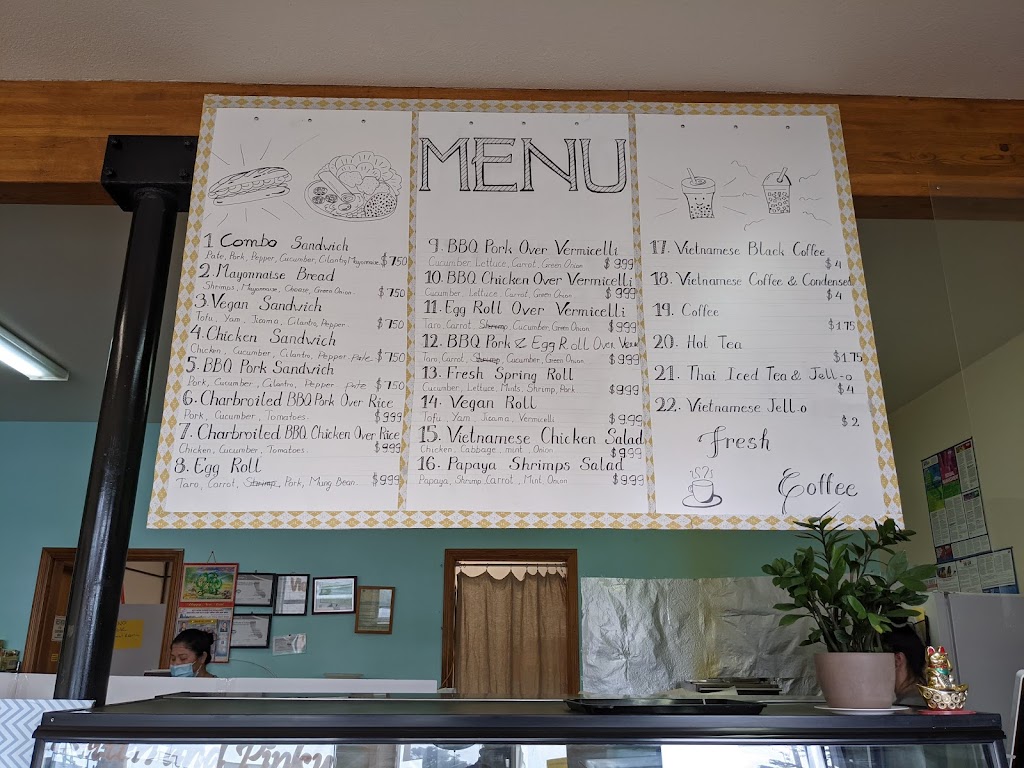 MENU
1 Combo Sandwich
Pate, Pork, Pepper, Cucumber, Cilantro, Mayonnaise $7.50
2. Mayonnaise Bread
Shrimps, Mayonnaise, Cheese, Green Onion $7.50
3. Vegan Sandwich
Tofu, Yam, Jicama, Cilantro, Pepper $7.50
4. Chicken Sandwich
Chicken, Cucumber, Cilantro, Pepper, pate $7.50
5. BBQ Pork Sandwich
Pork, Cucumber, Cilantro, Pepper pate $7.50
6. Charbroiled BBQ Pork Over Rice
Pork, Cucumber, Tomatoes $9.99
7. Charbroiled BBQ Chicken Over Rice
Chicken, Cucumber, Tomatoes $9.99
8. Egg Roll
Taro, Carrot, Shrimp, Pork, Mung Bean $9.99
9. BBQ Pork Over Vermicelli
Cucumber, Lettuce, Carrot, Green Onion $9.99
10. BBQ Chicken Over Vermicelli
Cucumber, Lettuce, Carrot, Green Onion $9.99
11. Egg Roll Over Vermicelli
Taro, Carrot, Shrimp Cucumber, Green Onion $9.99
12. BBQ Pork & Egg Roll Over Verm
Taro, Carrot, Shrimp, Cucumber, Green Onion $9.99
13. Fresh Spring Roll
Cucumber, Lettuce, Mints, Shrimp, Pork $9.99
14. Vegan Roll
Tofu, Yam, Jicama, Vermicelli $9.99
15. Vietnamese Chicken Salad
Chicken, Cabbage, mint, Onion $9.99
16. Papaya Shrimps Salad
Papaya, Shrimp, Carrot, Mint, Onion $9.99
17. Vietnamese Black Coffee
$4
18. Vietnamese Coffee & Condensed
$4
19. Coffee
$1.75
20. Hot Tea
$1.75
21. Thai Iced Tea & Jell-o
$4
22. Vietnamese Jell-o
$2
Fresh
Coffee